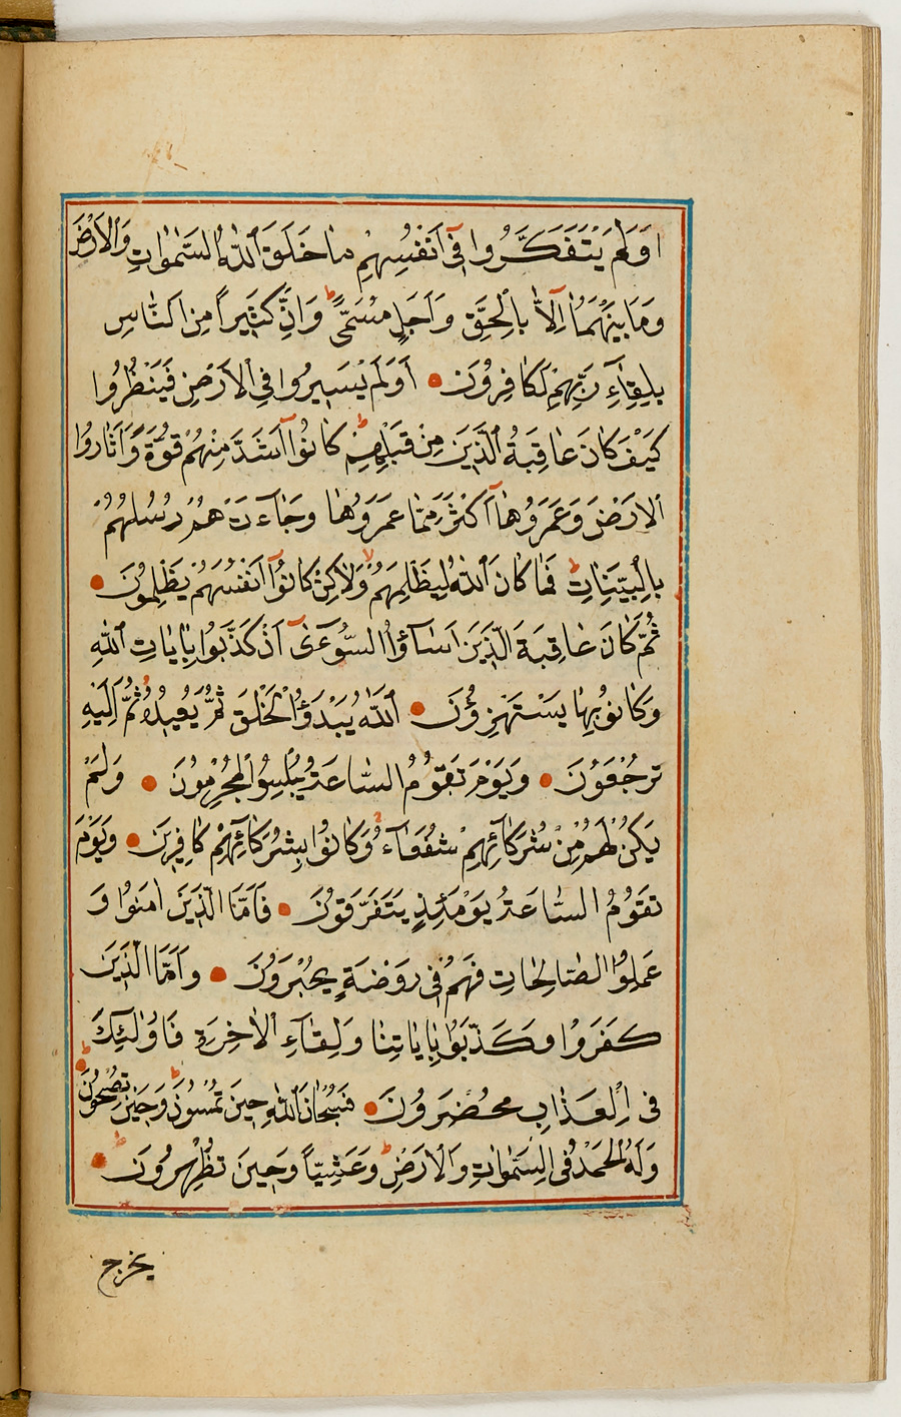 اَوَلَمْ يَتَفَكَّرُوا فِٓى اَنْفُسِهِمْ مَا خَلَقَ اللّٰهُ السَّمٰوَاتِ وَالْاَرْضَ
وَمَا بَيْنَهُمَٓا اِلَّا بِالْحَقِّ وَاَجَلٍ مُسَمًّىۜ وَاِنَّ كَثِيراً مِنَ النَّاسِ
بِلِقَٓاءِ رَبِّهِمْ لَكَافِرُونَ اَوَلَمْ يَسِيرُوا فِى الْاَرْضِ فَيَنْظُرُوا
كَيْفَ كَانَ عَاقِبَةُ الَّذِينَ مِنْ قَبْلِهِمْۜ كَانُٓوا اَشَدَّ مِنْهُمْ قُوَّةً وَاَثَارُوا
الْاَرْضَ وَعَمَرُوهَٓا اَكْثَرَ مِمَّا عَمَرُوهَا وَجَٓاءَتْهُمْ رُسُلُهُمْ
بِالْبَيِّنَاتِۜ فَمَا كَانَ اللّٰهُ لِيَظْلِمَهُمْ وَلٰكِنْ كَانُٓوا اَنْفُسَهُمْ يَظْلِمُونَ
ثُمَّ كَانَ عَاقِبَةَ الَّذِينَ اَسَٓاؤُا السُّٓوآٰى اَنْ كَذَّبُوا بِاٰيَاتِ اللّٰهِ
وَكَانُوا بِهَا يَسْتَهْزِؤُنَ اَللّٰهُ يَبْدَؤُا الْخَلْقَ ثُمَّ يُعِيدُهُ ثُمَّ اِلَيْهِ
تُرْجَعُونَ وَيَوْمَ تَقُومُ السَّاعَةُ يُبْلِسُ الْمُجْرِمُونَ وَلَمْ
يَكُنْ لَهُمْ مِنْ شُرَكَٓائِهِمْ شُفَعَٓاءُ وَكَانُوا بِشُرَكَٓائِهِمْ كَافِرِينَ وَيَوْمَ
تَقُومُ السَّاعَةُ يَوْمَئِذٍ يَتَفَرَّقُونَ فَاَمَّا الَّذِينَ اٰمَنُوا وَ
عَمِلُوا الصَّالِحَاتِ فَهُمْ فِى رَوْضَةٍ يُحْبَرُونَ وَاَمَّا الَّذِينَ
كَفَرُوا وَكَذَّبُوا بِاٰيَاتِنَا وَلِقَٓاءِ الْاٰخِرَةِ فَاُولٰٓئِكَ
فِى الْعَذَابِ مُحْضَرُونَ فَسُبْحَانَ اللّٰهِ حِينَ تُمْسُونَ وَحِينَ تُصْبِحُونَ
وَلَهُ الْحَمْدُ فِى السَّمٰوَاتِ وَالْاَرْضِ وَعَشِيّاً وَحِينَ تُظْهِرُونَ
يخرج